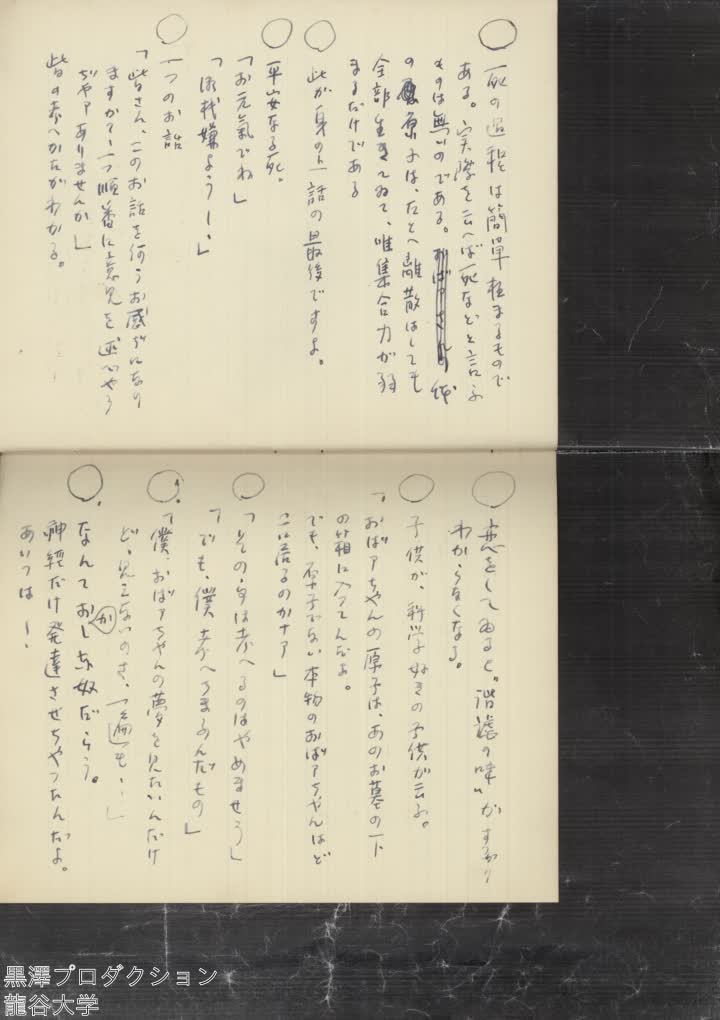 ○ 死の過程は簡單極まるもので
ある。実際を云へば死などと言ふ
ものは無いのである。
の原子は、たとへ離散はしても
全部生きてゐて、唯集合力が弱
まるだけである
○ 此が身の上話の最後ですよ。
○ 平凡なる死。
「お元氣でね」
「御機嫌よう――」
○ 一つのお話
「皆さん、このお話を何うお感じになり
ますか？一つ順番に意見を述べやう
ぢやアありませんか」
皆の考へかたがわかる。
○ 恋をしてゐると。
わからなくなる。
○ 子供が、科学好きの子供が云ふ。
「おばアちやんの原子は、あのお墓の下
の箱に入つてんだよ。
でも、原子でない本物のおばアちやんはど
こに居るのかナア」
○ 「その事は考へるのはやめませう」
「でも、僕、考へちまふんだもの」
○ 「僕、おばアちやんの夢を見たいんだけ
ど、見えないのさ、一遍も‥」
○ なんておかしな奴だらう。
神経だけ発達させちやつたんだよ。
あいつは――
黒澤プロダクション
龍谷大学